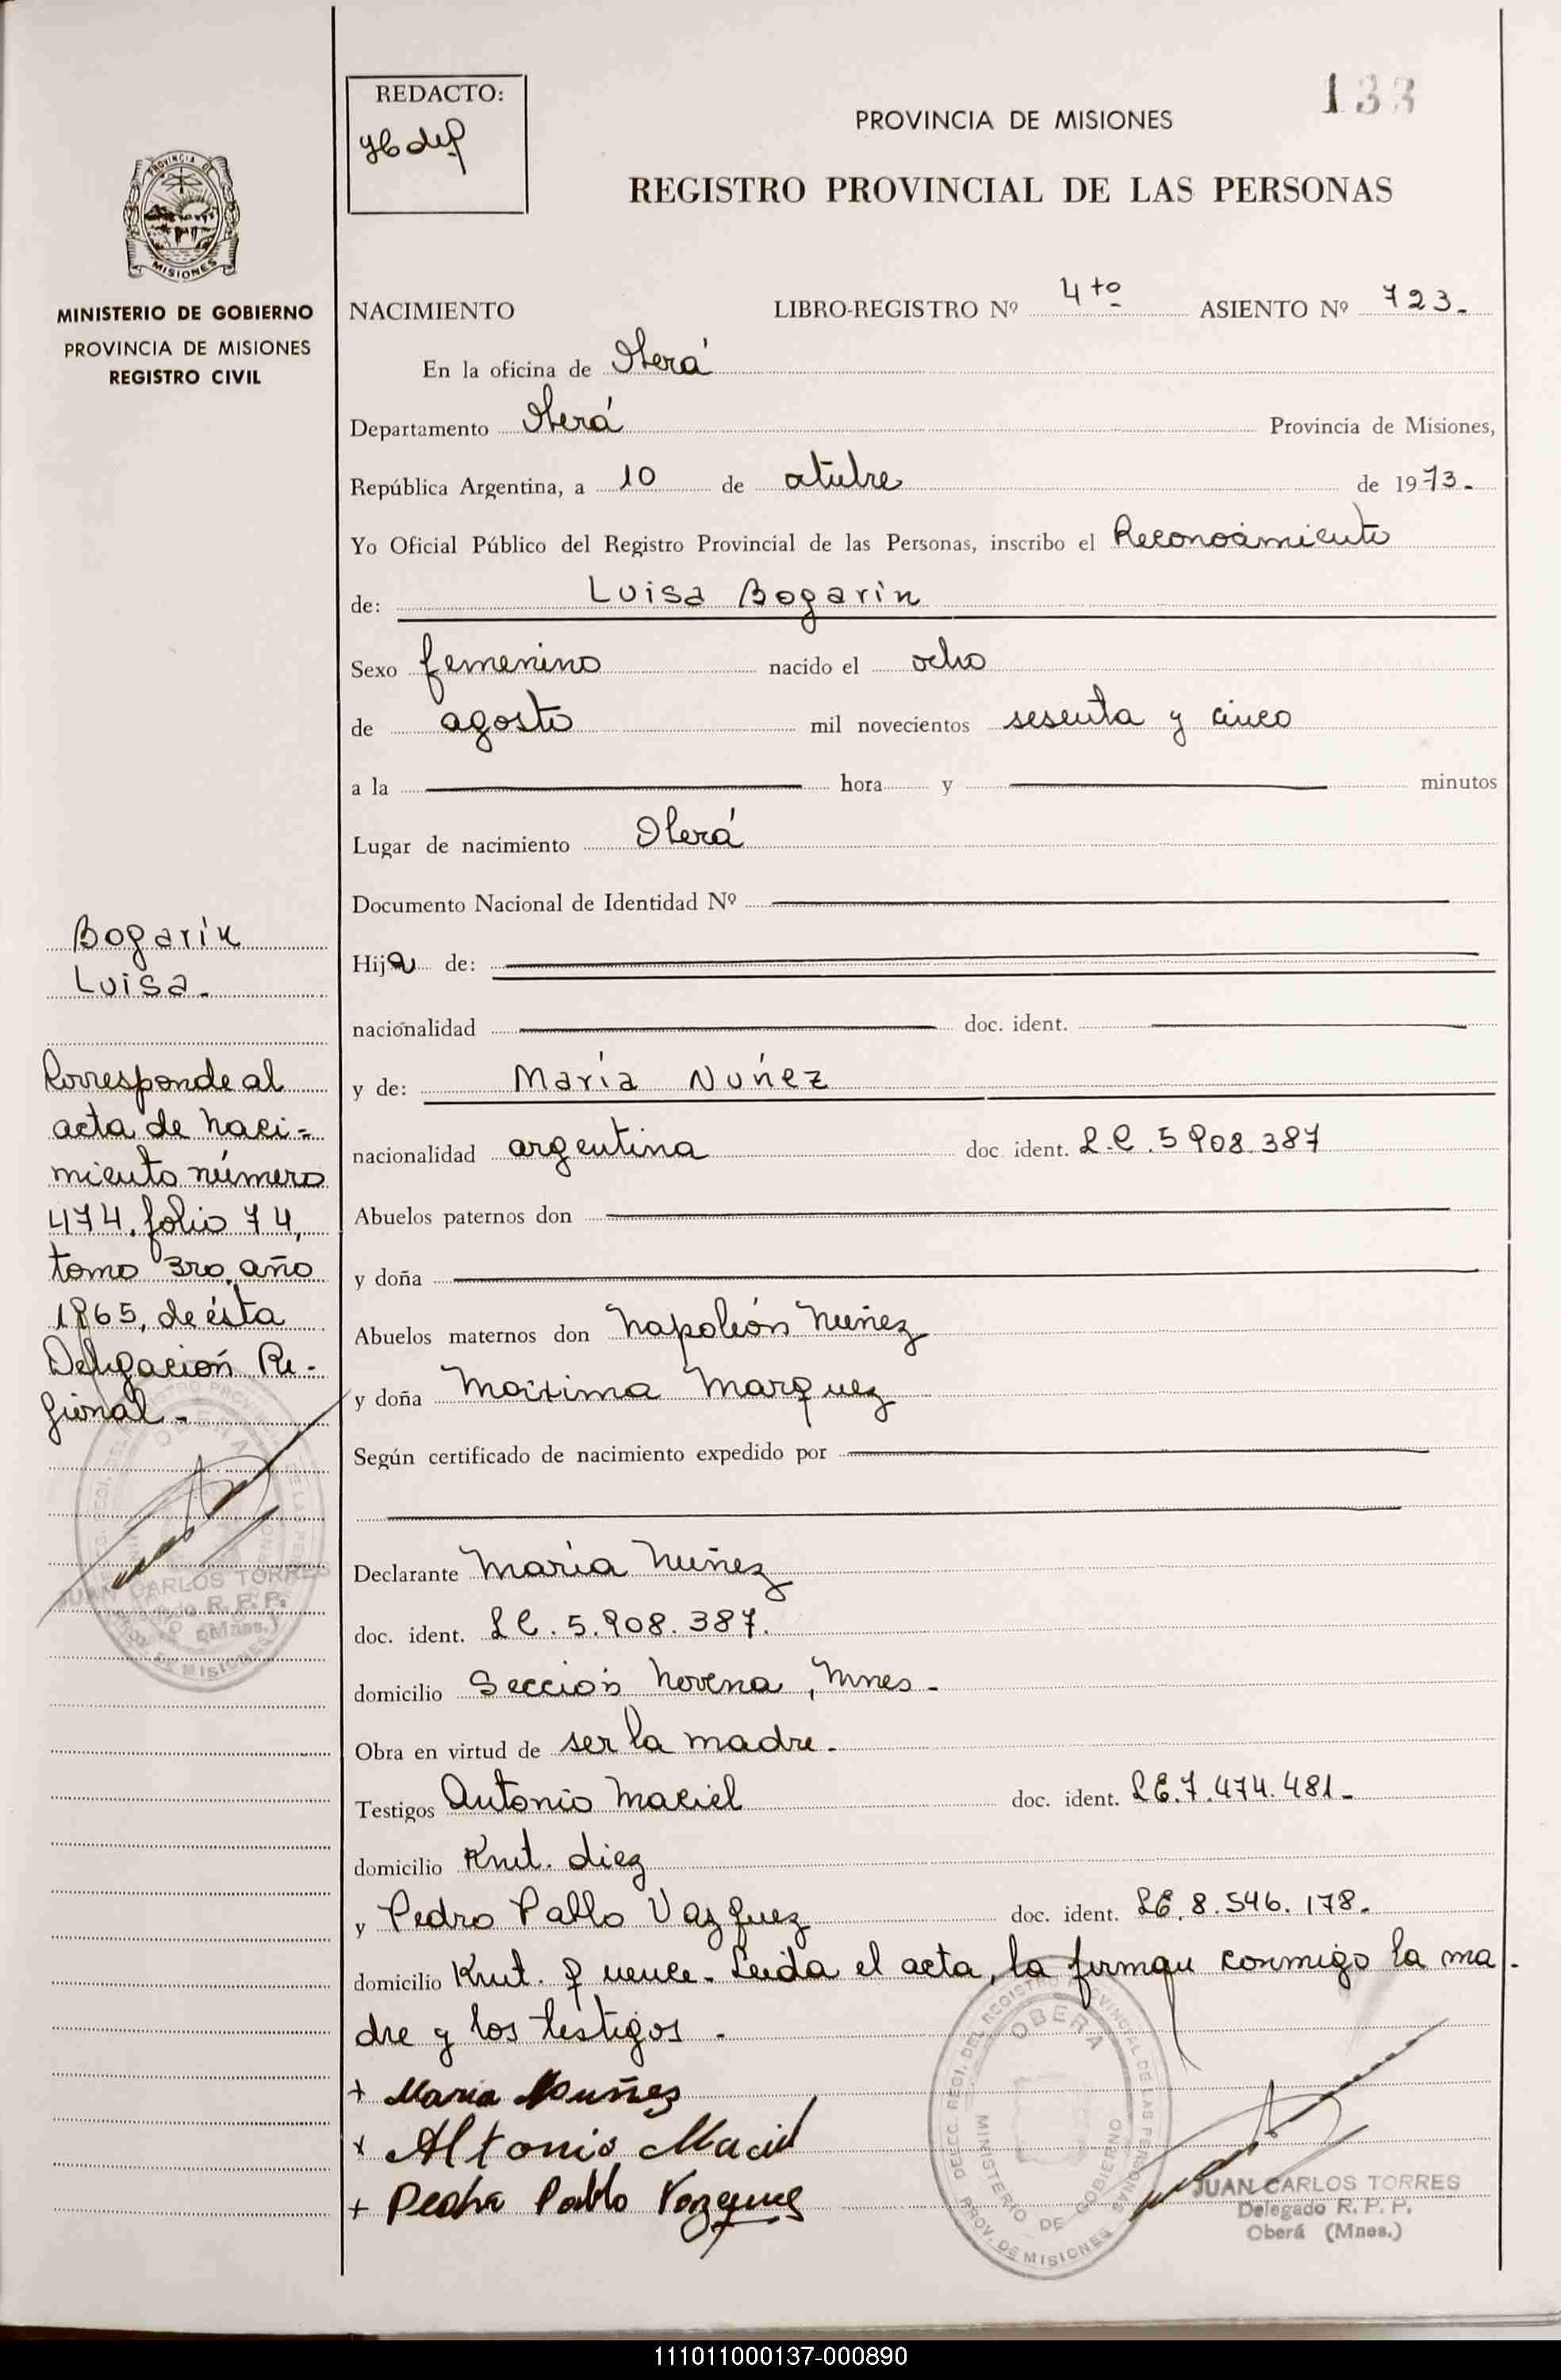 133
REDACTO:
PROVINCIA DE MISIONES
REGISTRO PROVINCIAL DE LAS PERSONAS
PROVINCIA DE
MISIONES
MINISTERIO DE GOBIERNO
PROVINCIA DE MISIONES
REGISTRO CIVIL
NACIMIENTO LIBRO-REGISTRO Nº 4to ASIENTO Nº 723.
En la oficina de Oberá
Departamento Oberá Provincia de Misiones,
República Argentina, a 10 de octubre de 1973.
Yo Oficial Público del Registro Provincial de las Personas, inscribo el Reconocimiento
de: Luisa Bogarín
Sexo femenino nacido el ocho
de agosto mil novecientos sesenta y cinco
a la hora y minutos
Lugar de nacimiento Oberá
Documento Nacional de Identidad Nº
Hija de:
nacionalidad doc. ident.
y de: María Nuñez
nacionalidad argentina doc. ident. L.C. 5908.387
Abuelos paternos don
y doña
Abuelos maternos don Napoleón Nuñez
y doña Maxima Marquez
Según certificado de nacimiento expedido por
Declarante María Nuñez
doc. ident. LC. 5.908.387.
domicilio Sección Novena, Mnes.
Obra en virtud de ser la madre.
Testigos Antonio Maciel doc. ident. LE.7.474.481.
domicilio Knt. diez
y Pedro Pablo Vazquez doc. ident. LE.8.546.178.
domicilio Knt. 9 Leida el acta, la firman conmigo la ma-
dre y los testigos.
+ Maria Nuñez
+ Altonio Maciel
+ Pedro Pablo Vazquez
Bogarín
Luisa.
Corresponde al
acta de naci-
miento número
474. folio 74,
tomo 3ro. año
1965, de ésta
Delegación Re-
gional.
JUAN CARLOS TORRES
R. P. P.
(Mnes.)
OBERA
MINISTERIO DE GOBIERNO
PROV. DE MISIONES
JUAN CARLOS TORRES
Delegado R. P. P.
Oberá (Mnes.)
111011000137-000890